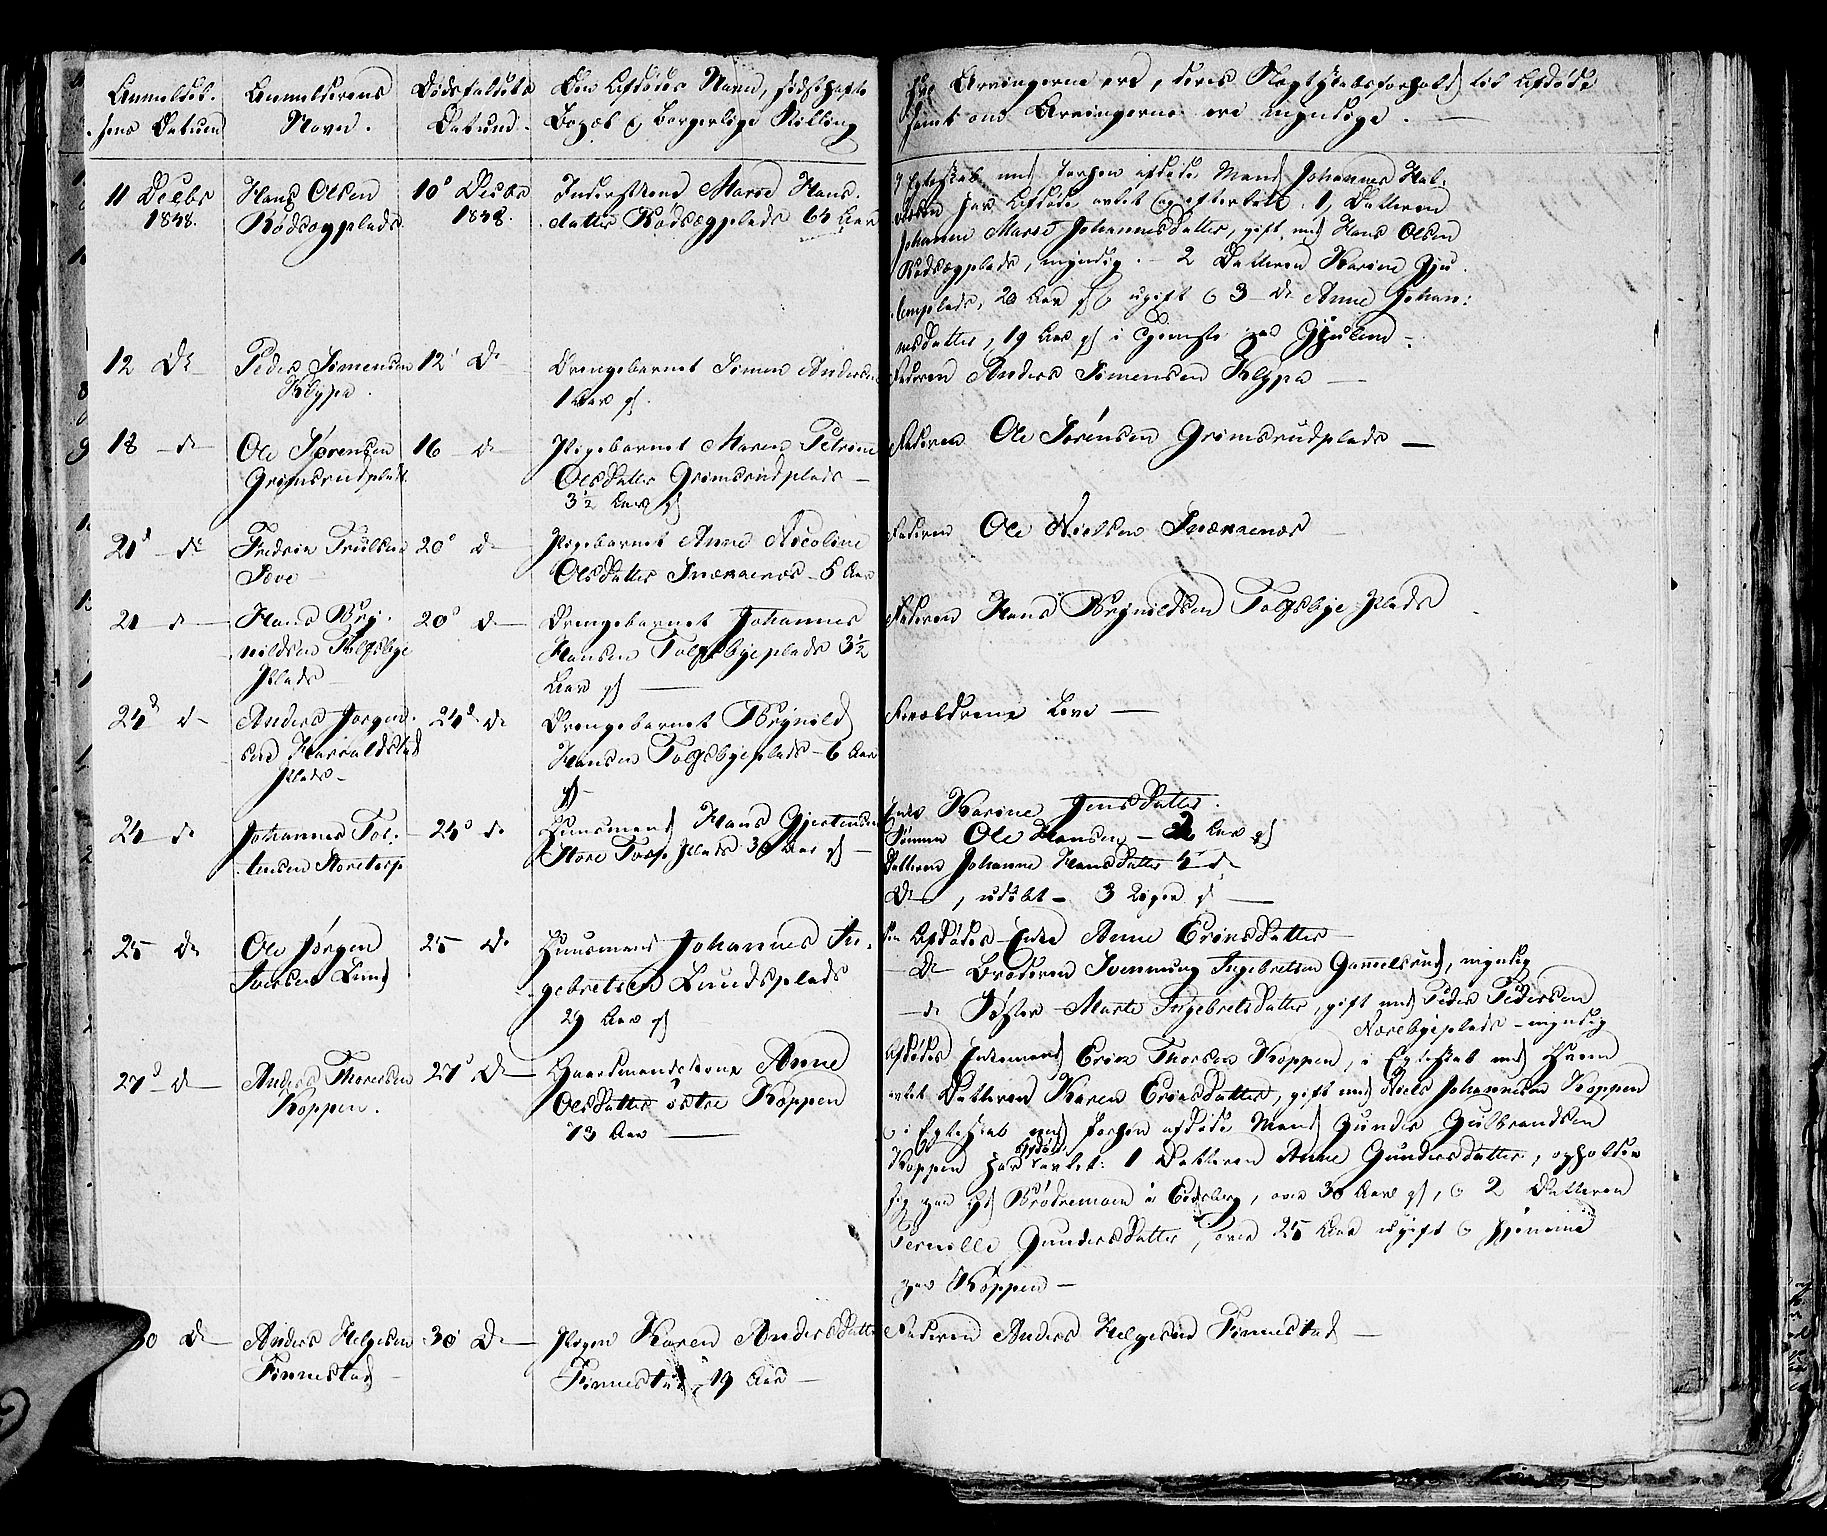 Anmeldel-
sens Datum
Anmelderens
Navn.
Dødsfaldets
Datum.
Den Afdødes Navn,
& borgerlige Stilling
Hvo Arvingerne ere, deres Slægtskabsforhold til Afdøde
samt om Arvingerne ere myndige.
11 Decbr
1838.
Hans Olsen
Rødsægplads
10de Decbr
1838.
Inderstkone Marte Hans-
datter Rødsægplads 64 Aar
I Egteskab med forhen afdøde Mand Johannes Hal-
har Afdøde avlet og efterladt: 1, Datteren
Johanne Marie Johannesdatter, gift med Hans Olsen
Rødsægplads, myndig. - 2 Datteren Karine Gju-
lemplads, 20 Aar gl & ugift & 3 - do Anne Johan-
nesdatter, 19 Aar gl i Tjeneste paa Gjulem -
12 Do
Peder Simensen
Klypa.
12 Do
Drengebarnet Simen Andersen
1 Aar gl.
Faderen Anders Simensen Klypa -
18 - do
Ole Sørensen
Grimsrudplads.
16 do
Pigebarnet Maren Petrine
Olsdatter Grimsrudplads -
3½ Aar gl
Faderen Ole Sørensen Grimsrudplads -
21de - do
Fredrik Trulsen
20de do
Pigebarnet Anne Nicoline
Olsdatter - 5 Aar
Faderen Ole Nielsen
21 do
Hans Bry-
nildsen Tolfsbye
Plads
20de do
Drengebarnet Johannes
Hansen Tolfsbyeplads 3½
Aar gl -
Faderen Hans Brynildsen Tolfsbye Plads
24de do
Anders Jørgen-
sen Harraldstad
Plads -
24de do
Drengebarnet Brynild
Hansen Tolfsbyeplads - 6 Aar
gl -
Forældrene leve -
24 do
Johannes Tol-
lensen Storetorp
24de do
Huusmand Hans Gjertsen
Store Torp Plads 30 Aar gl -
Enke Karine Jensdatter.
Sønnen Ole Hansen - 2 Aar gl
Datteren Johanne Hansdatter 4 do
Do , udøbt - 3 Uger gl -
25 do
Ole Jørgen
Iversen Lund
25 do
Huusmand Johannes In-
gebretsen Lundsplads
29 Aar gl
Den Afdødes Enke Anne Eriksdatter
- Do Broderen Svenning Ingebretsen Gammelsrud, myndig
- do Søster Marte Ingebretsdatter, gift med Peder Pedersen
Norebyeplads - myndig
27de do
Anders Thoresen
Koppen.
27de do
Gaardmandskone Anne
Olsdatter østre Koppen
73 Aar -
Afdødes Enkemand Erik Thorsen Koppen, i Egteskab med Ham
avlet Datteren Karen Eriksdatter, gift med Niels Johannesen Koppen
& i Egteskab med forhen afdøde Mand Gunder Gulbrandsen
Koppen har Afdøde avlet: 1 Datteren Anne Gundersdatter, opholder
sig paa Gd Brødremoen i Eidsberg, over 30 Aar gl, & 2 Datteren
Pernille Gundersdatter, over 25 Aar ugift & hjemme
paa Koppen -
30 do
Anders Helgesen
Finnestad
30 Do
Pigen Karen Andersdatter
Finnestad, 19 Aar -
Faderen Anders Helgesen Finnestad -